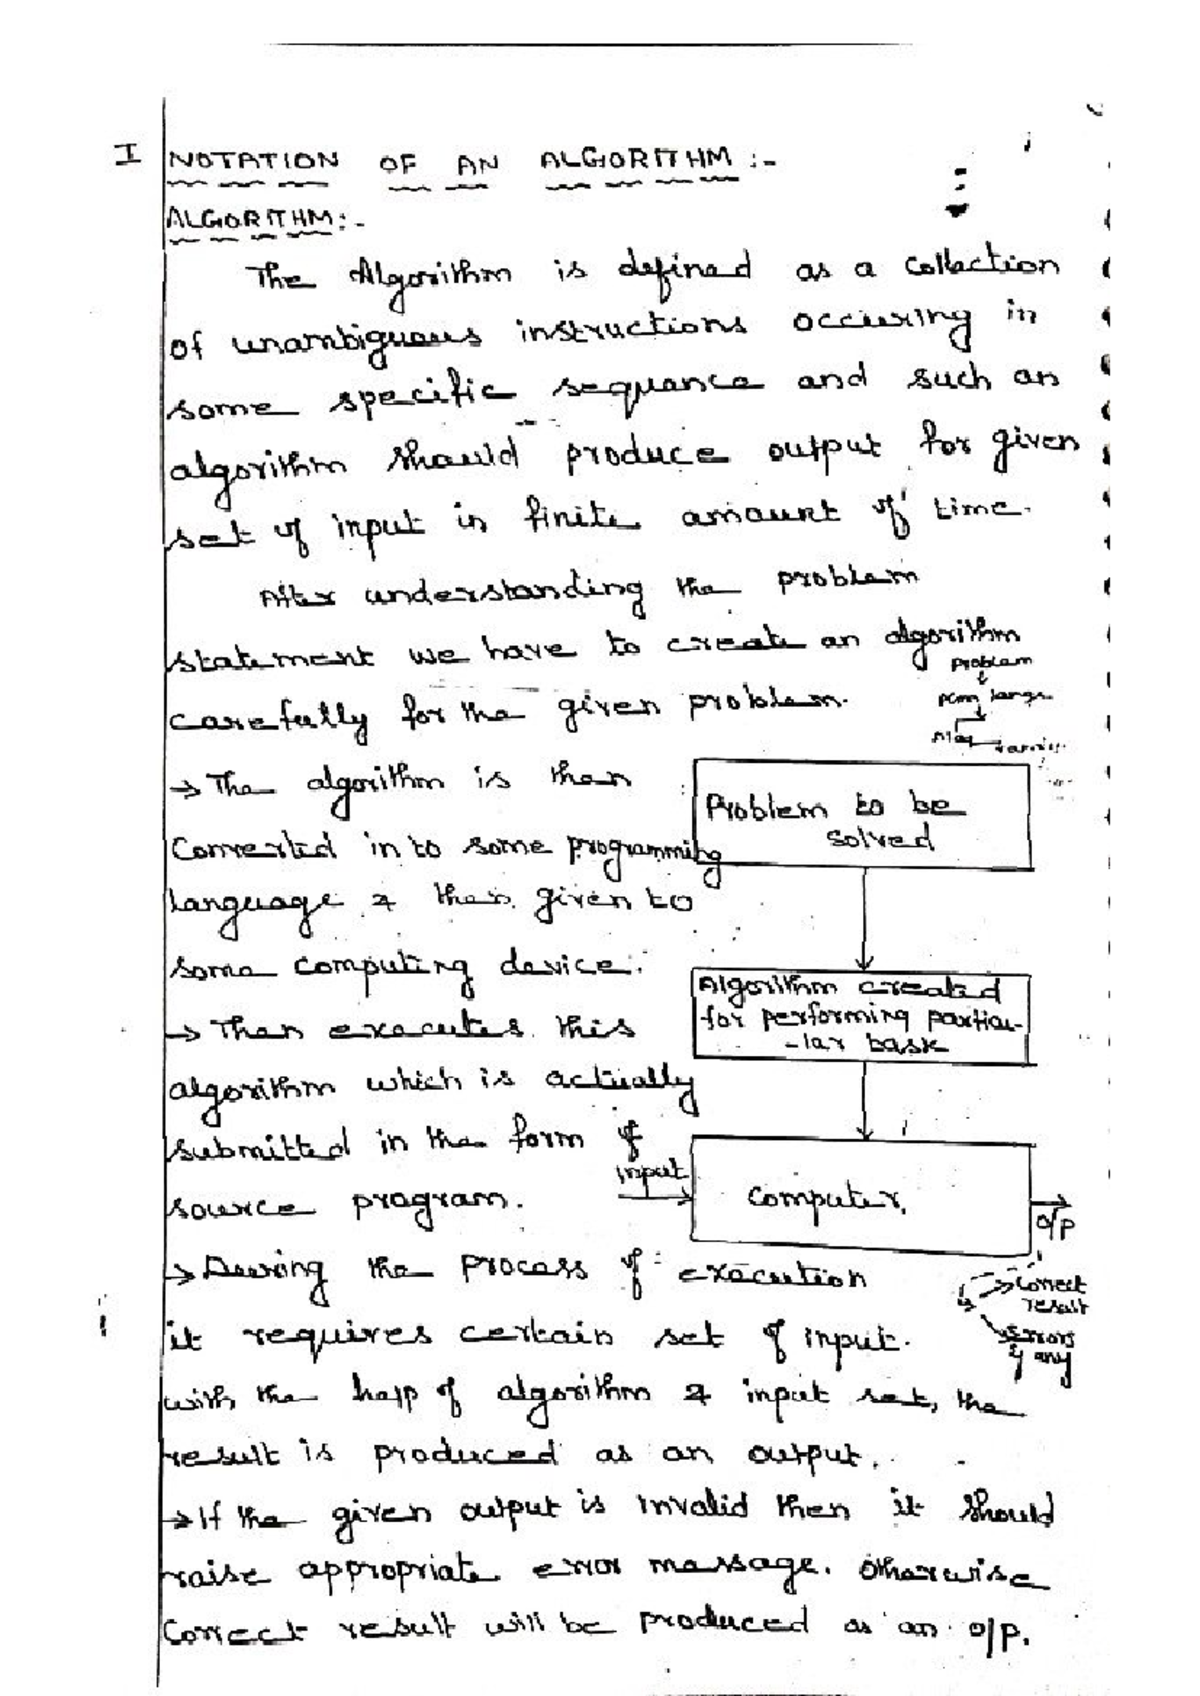 I NOTATION OF AN ALGORITHM :-
ALGORITHM:-
The Algorithm is defined as a collection
of unambiguous instructions occuring in
some specific sequence and such an
algorithm should produce output for given
set of input in finite amount of time.
After understanding the problem
statement we have to create an algorithm
carefully for the given problem.
problem
Problem to be
solved
→ The algorithm is then
Converted in to some programming
language & then given to
some computing device.
Algorithm created
for performing particu-
-lar bask
→ Then executes this
algorithm which is actually
submitted in the form of
source program.
input
Computer.
o/p
Correct
result
Errors
if any
→ During the process of execution
it requires certain set of input.
with the help of algorithm & input set, the
result is produced as an output.
→ If the given output is invalid then it should
raise appropriate error message. Otherwise
Correct result will be produced as an o/p.